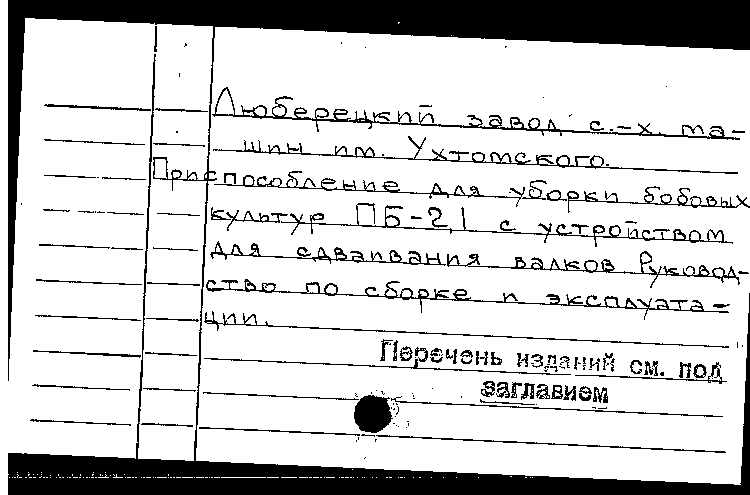 Люберецкий завод с.-х. ма-
шин им. Ухтомского.
Приспособление для уборки бобовых
культур ПБ-2,1 с устройством
для сдваивания валков Руковод-
ство по сборке и эксплуата-
ции.
Перечень изданий см. под
заглавием